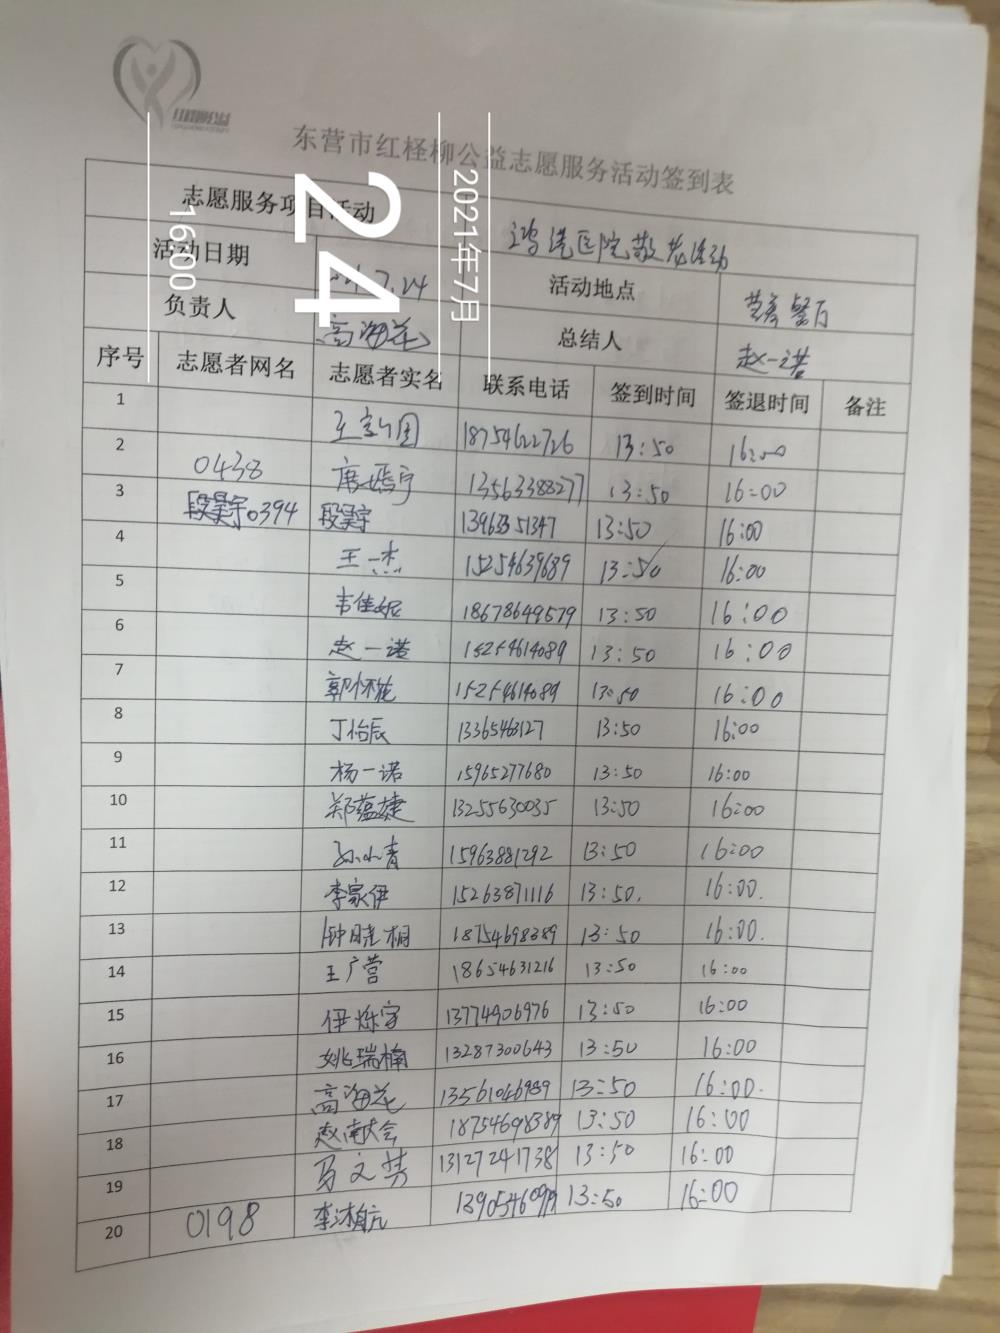 东营市红柽柳公益志愿服务活动签到表
志愿服务项目活动 鸿港医院敬老活动
活动日期 7.24 活动地点
负责人 高海花 总结人 赵一诺
序号 志愿者网名 志愿者实名 联系电话 签到时间 签退时间 备注
1 18754622726 13:50 16:00
2 0438 唐嫣宁 13563388277 13:50 16:00
3 段昊宇0394 段昊宇 13963351347 13:50 16:00
4 王一杰 15254639689 13:50 16:00
5 韦佳妮 18678649579 13:50 16:00
6 赵一诺 15254614089 13:50 16:00
7 郭怀花 15254614089 13:50 16:00
8 丁怡辰 13365463127 13:50 16:00
9 杨一诺 15965277680 13:50 16:00
10 郑蕴婕 13255630035 13:50 16:00
11 孙小青 15963881292 13:50 16:00
12 李家伊 15263871116 13:50. 16:00.
13 钟晓桐 18754698389 13:50 16:00.
14 王广营 18654631216 13:50 16:00
15 伊烁宇 13774906976 13:50 16:00
16 姚瑞楠 13287300643 13:50 16:00
17 高海花 13561046989 13:50 16:00.
18 赵献会 18754698389 13:50 16:00
19 马文芳 13127241738 13:50 16:00
20 0198 李沐航 13:50 16:00
24
2021年7月
16:00